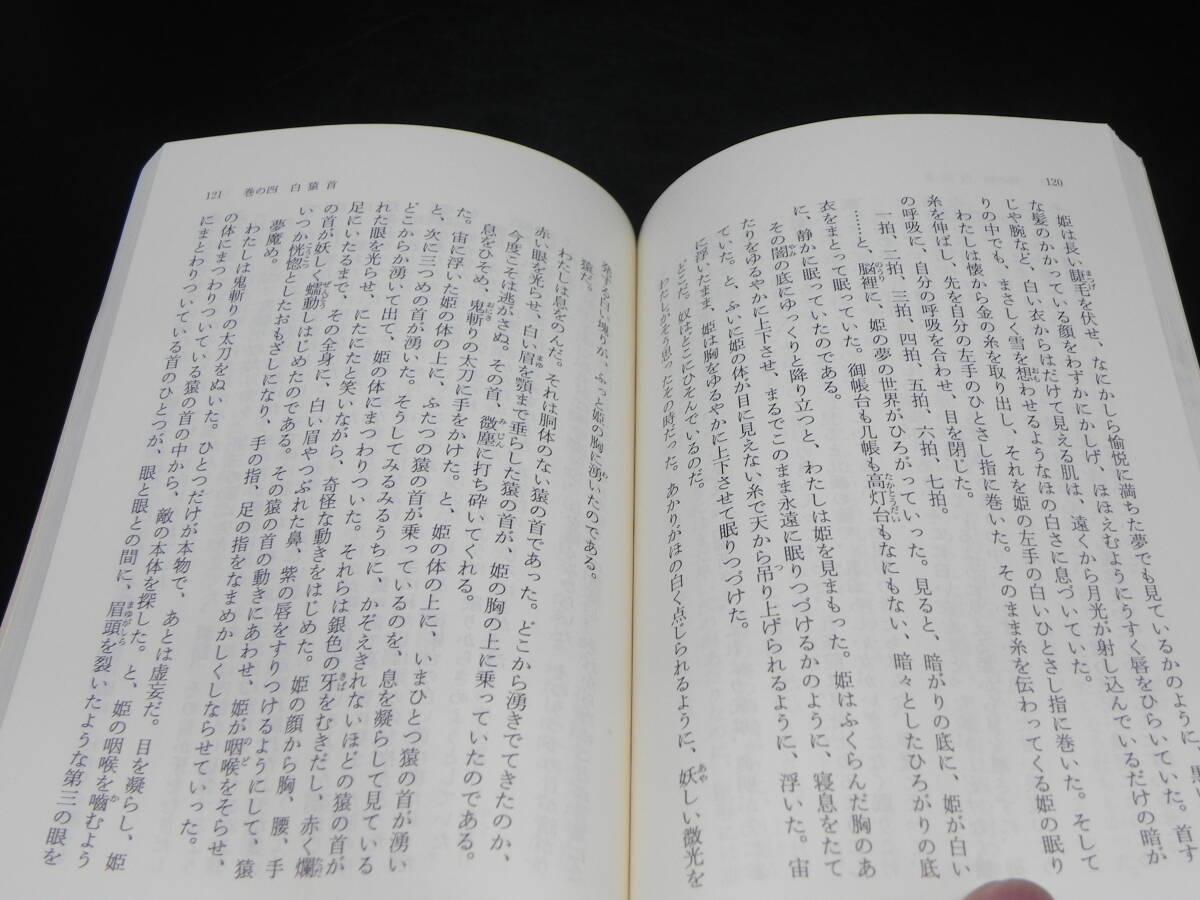 120
姫は長い睫毛を伏せ、なにかしら愉悦に満ちた夢でも見ているかのように、黒
な髪のかかっている顔をわずかにかしげ、ほほえむようにうす唇をひらいていた。首す
じや腕など、白い衣からはだけて見える肌は、遠くから月光が射し込んでいるだけの暗が
りの中でも、まさしく雪を想わせるようなほの白さに息づいていた。
わたしは懐から金の糸を取り出し、それを姫の左手の白いひとさし指に巻いた。そして
糸を伸ばし、先を自分の左手のひとさし指に巻いた。そのまま糸を伝わってくる姫の眠り
の呼吸に、自分の呼吸を合わせ、目を閉じた。
一拍、二拍、三拍、四拍、五拍、六拍、七拍。
……と、脳裡に、姫の夢の世界がひろがっていった。見ると、暗がりの底に、姫が白い
衣をまとって眠っていた。御帳台も几帳も高灯台もなにもない、暗々としたひろがりの底
に、静かに眠っていたのである。
その闇の底にゆっくりと降り立つと、わたしは姫を見まもった。姫はふくらんだ胸のあ
たりをゆるやかに上下させ、まるでこのまま永遠に眠りつづけるかのように、寝息をたて
ていた。と、ふいに姫の体が目に見えない糸で天から吊り上げられるように、浮いた。宙
に浮いたまま、姫は胸をゆるやかに上下させて眠りつづけた。
どこだ。奴はどこにひそんでいるのだ。
わたしがそう思ったその時だった。あかりがほの白く点じられるように、妖しい微光を
121 巻の四 白猿首
発する白い塊りが、ふっと姫の胸に湧いたのである。
猿だ。
わたしは息をのんだ。それは胴体のない猿の首であった。どこから湧きでてきたのか、
赤い眼を光らせ、白い眉を顎まで垂らした猿の首が、姫の胸の上に乗っていたのである。
今度こそは逃がさぬ。その首、微塵に打ち砕いてくれる。
息をひそめ、鬼斬りの太刀に手をかけた。と、姫の体の上に、いまひとつ猿の首が湧い
た。宙に浮いた姫の体の上に、ふたつの猿の首が乗っているのを、息を凝らして見ている
と、次に三つめの首が湧いた。そうしてみるみるうちに、かぞえきれないほどの猿の首が
どこからか湧いて出て、姫の体にまつわりついた。それらは銀色の牙をむきだし、赤く爛
れた眼を光らせ、にたにたと笑いながら、奇怪な動きをはじめた。姫の顔から胸、腰、手
足にいたるまで、その全身に、白い眉やつぶれた鼻、紫の唇をすりつけるようにして、猿
の首が妖しく蠕動しはじめたのである。その猿の首の動きにあわせ、姫が咽喉をそらせ、
いつか恍惚としたおもざしになり、手の指、足の指をなまめかしくしならせていった。
夢魔め。
わたしは鬼斬りの太刀をぬいた。ひとつだけが本物で、あとは虚妄だ。目を凝らし、姫
の体にまつわりついている猿の首の中から、敵の本体を探した。と、姫の咽喉を嚙むよう
にまとわりついている首のひとつが、眼と眼との間に、眉頭を裂いたような第三の眼を